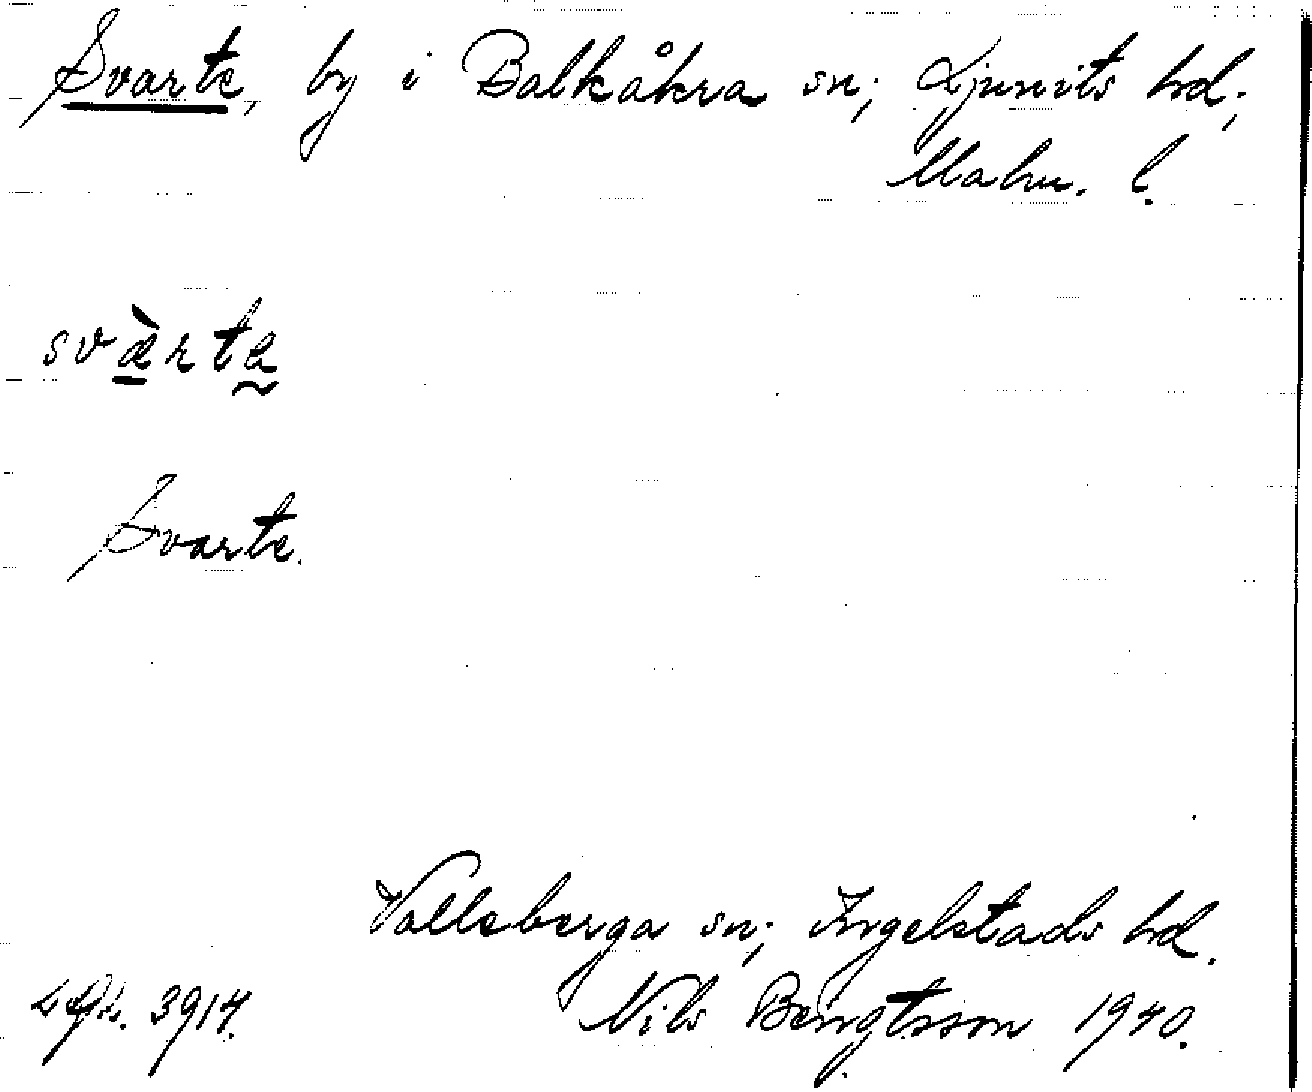 Svarte, by i Balkåkra sn; Ljunits hd;
Malm. l.
svæ̀rta
Svarte.
Valleberga sn; Ingelstads hd.
3914. Nils Bengtsson 1940.